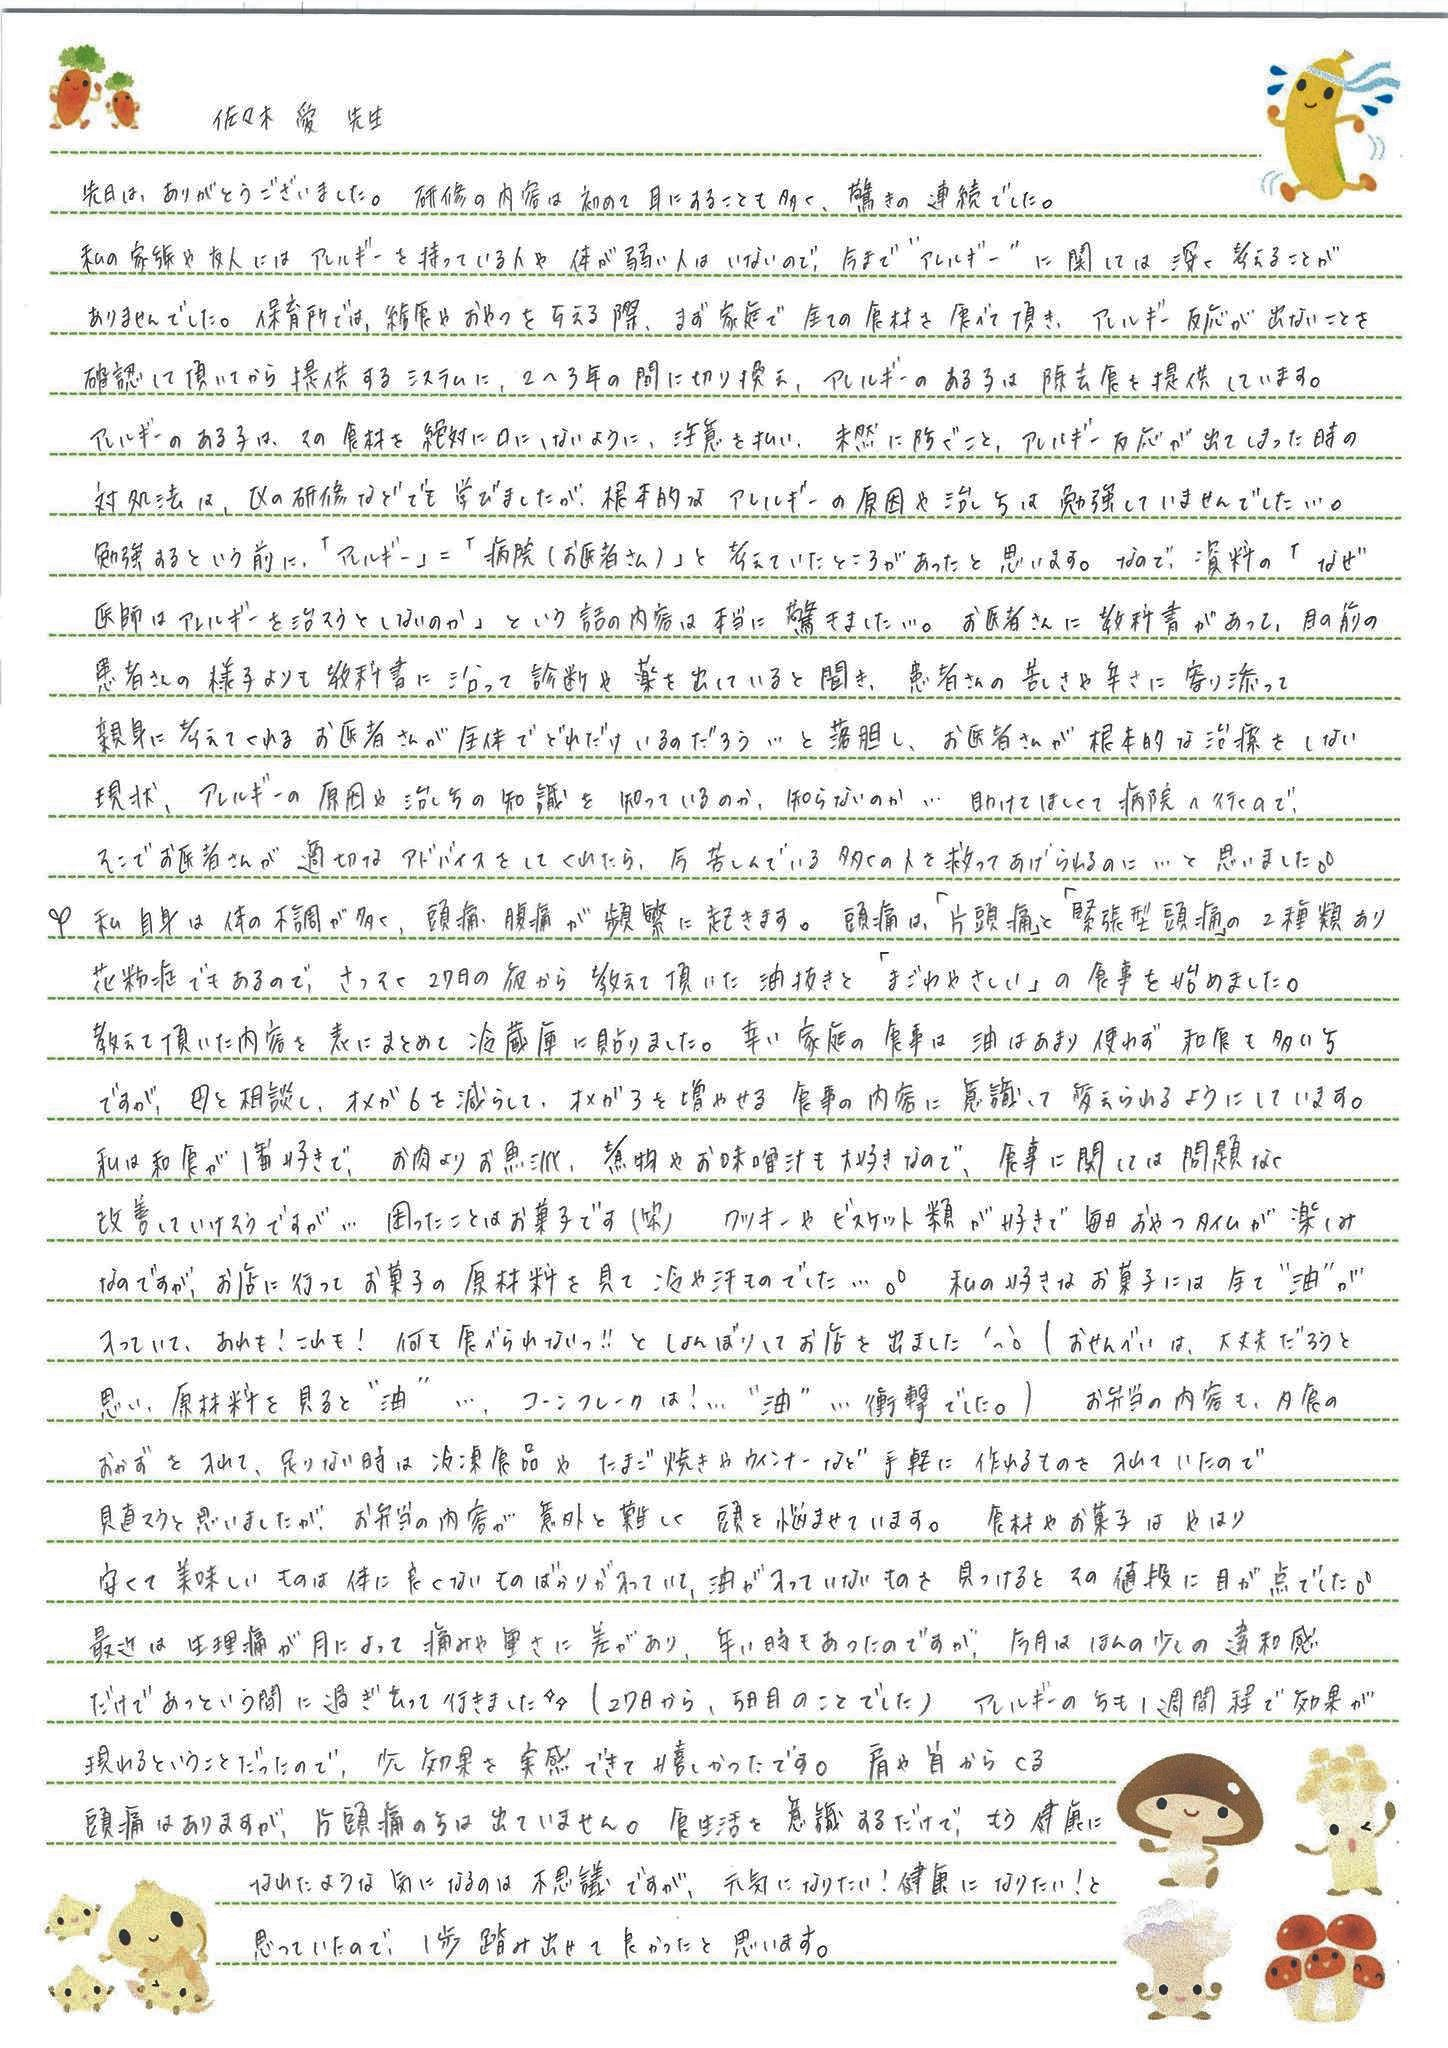 佐々木 愛 先生
先日は、ありがとうございました。 研修の内容は初めて耳にすることも多く、驚きの連続でした。
私の家族や友人にはアレルギーを持っている人や体が弱い人はいないので、今まで"アレルギー"に関しては深く考えることが
ありませんでした。保育所では、給食やおやつを与える際、まず家庭で全ての食材を食べて頂き、アレルギー反応が出ないことを
確認して頂いてから提供するシステムに、2〜3年の間に切り換え、アレルギーのある子は除去食を提供しています。
アレルギーのある子は、その食材を絶対に口にしないように、注意を払い、未然に防ぐこと、アレルギー反応が出てしまった時の
対処法は、区の研修などでも学びましたが、根本的なアレルギーの原因や治し方は勉強していませんでした…。
勉強するという前に、「アレルギー」=「病院(お医者さん)」と考えていたところがあったと思います。なので、資料の「なぜ
医師はアレルギーを治そうとしないのか」という話の内容は本当に驚きました…。 お医者さんに教科書があって、目の前の
患者さんの様子よりも教科書に沿って診断や薬を出していると聞き、患者さんの苦しさや辛さに寄り添って
親身に考えてくれるお医者さんが全体でどれだけいるのだろう…と落胆し、お医者さんが根本的な治療をしない
現状、アレルギーの原因や治し方の知識を知っているのか、知らないのか… 助けてほしくて病院へ行くので、
そこでお医者さんが適切なアドバイスをしてくれたら、今苦しんでいる多くの人を救ってあげられるのに…と思いました。
私自身は体の不調が多く、頭痛・腹痛が頻繁に起きます。 頭痛は、「片頭痛」と「緊張型頭痛」の2種類あり
花粉症でもあるので、さっそく27日の夜から教えて頂いた油抜きと「まごわやさしい」の食事を始めました。
教えて頂いた内容を表にまとめて冷蔵庫に貼りました。幸い家庭の食事は油はあまり使わず和食も多い方
ですが、母と相談し、オメガ6を減らして、オメガ3を増やせる食事の内容に意識して変えられるようにしています。
私は和食が1番好きで、お肉よりお魚派、煮物やお味噌汁も大好きなので、食事に関しては問題なく
改善していけそうですが… 困ったことはお菓子です(笑) クッキーやビスケット類が好きで毎日おやつタイムが楽しみ
なのですが、お店に行ってお菓子の原材料を見て冷や汗ものでした…。 私の好きなお菓子には全て"油"が
入っていて、あれも!これも! 何も食べられないっ!!としょんぼりしてお店を出ました (おせんべいは、大丈夫だろうと
思い、原材料を見ると"油"…、コーンフレークは!…"油"…衝撃でした。) お弁当の内容も、夕食の
おかずを入れて、足りない時は冷凍食品やたまご焼きやウインナーなど手軽に作れるものを入れていたので
見直そうと思いましたが、お弁当の内容が意外と難しく頭を悩ませています。 食材やお菓子はやはり
安くて美味しいものは体に良くないものばかりが入っていて、油が入っていないものを見つけるとその値段に目が点でした。
最近は生理痛が月によって痛みや重さに差があり、辛い時もあったのですが、今月はほんの少しの違和感
だけであっという間に過ぎ去って行きました (27日から、5日目のことでした) アレルギーの方も1週間程で効果が
現れるということだったので、少し効果を実感できて嬉しかったです。肩や首からくる
頭痛はありますが、片頭痛の方は出ていません。食生活を意識するだけで、もう健康に
なれたような気になるのは不思議ですが、元気になりたい!健康になりたい!と
思っていたので、1歩踏み出せて良かったと思います。